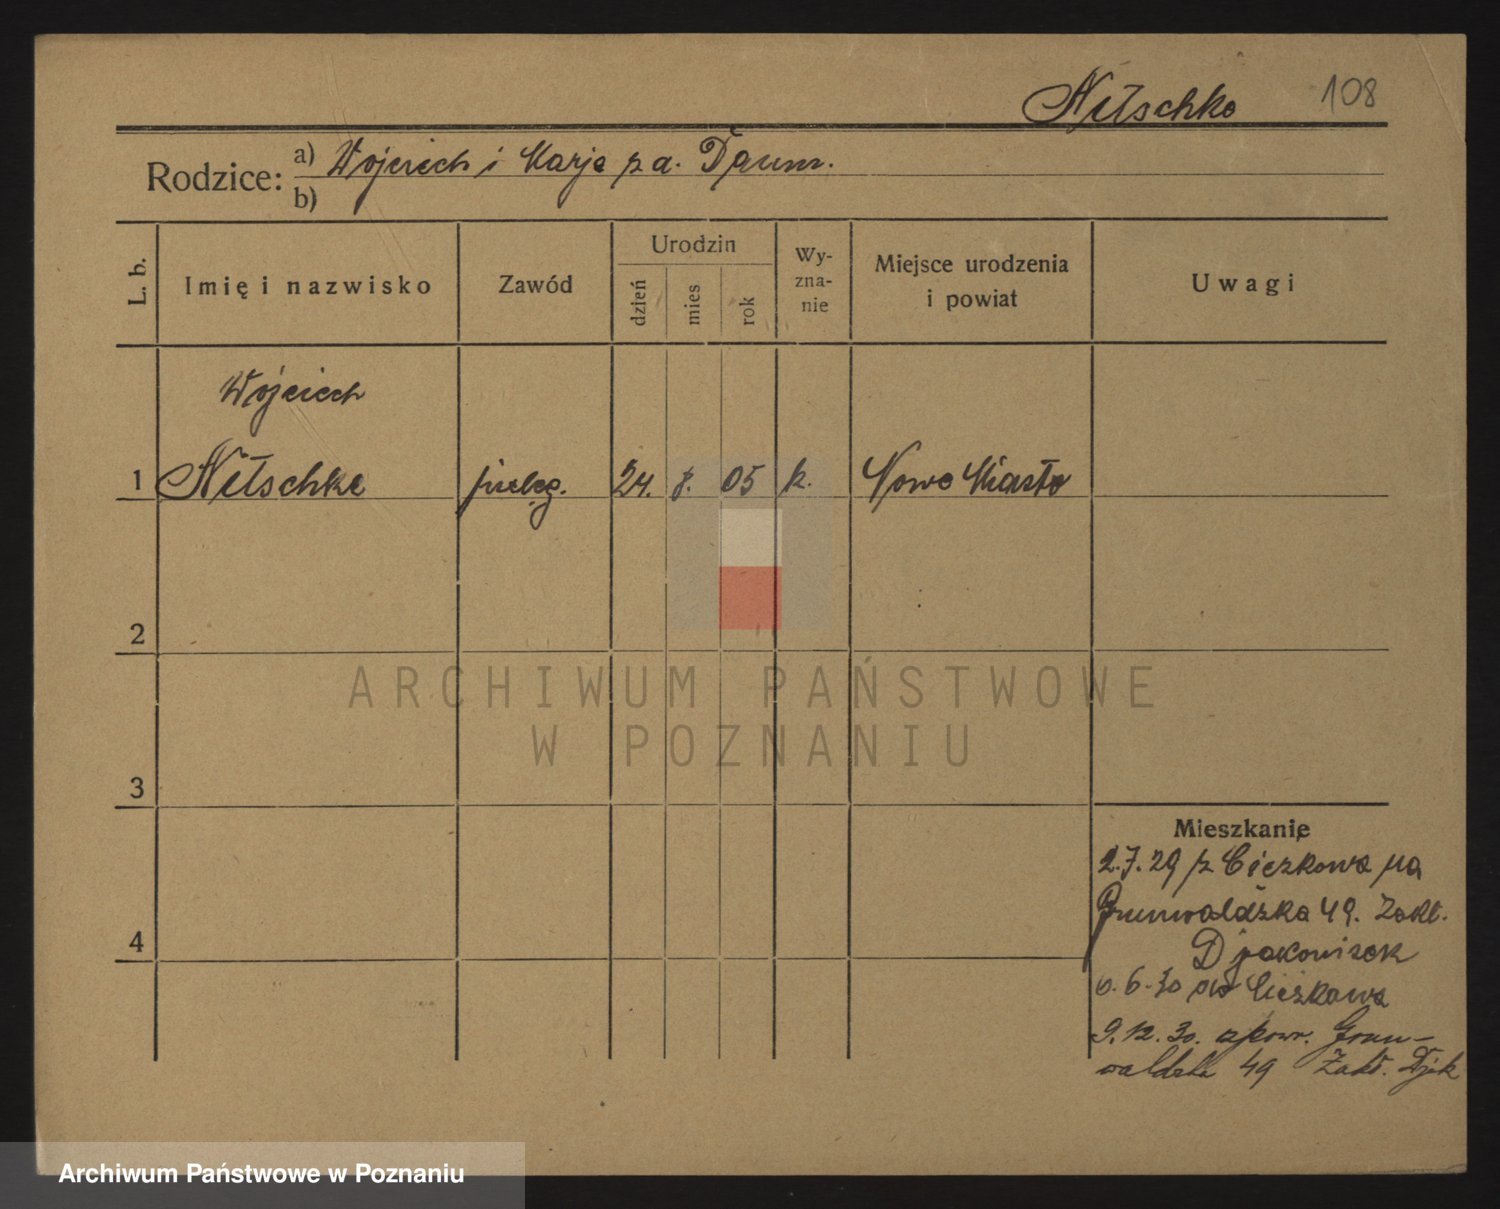 Nitschke 108
Rodzice: a) Wojciech i Marja z d. Daum.
b)
L. b. Imię i nazwisko Zawód Urodzin dzień mies rok Wy-zna-nie Miejsce urodzenia i powiat Uwagi
Wojciech
1 Nitschke pielęg. 24. 8. 05 k. Nowe Miasto
2
3
4
Mieszkanie
2.7.29 z na
Grunwaldzka 49. Zakł.
Djakonisek
6.30
9.12.30. zpowr. Grun-
waldzka 49 Zakł. Djak
ARCHIWUM PAŃSTWOWE
W POZNANIU
Archiwum Państwowe w Poznaniu